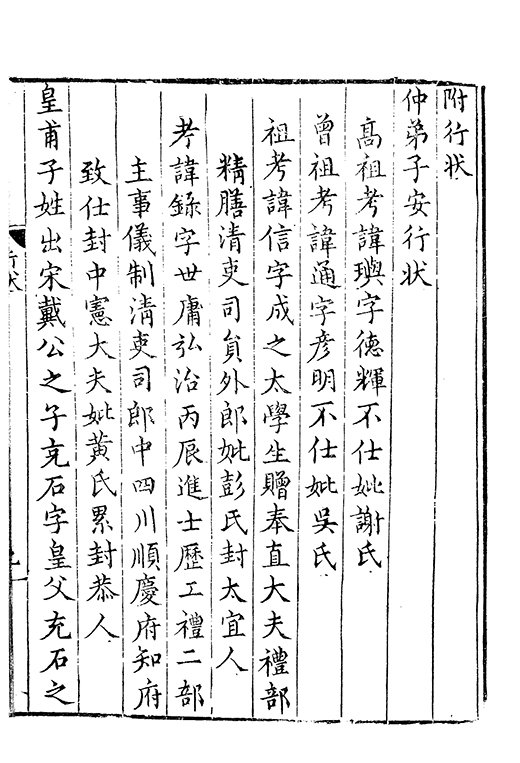 附行状
仲弟子安行状
高祖考諱璵字德輝不仕妣謝氏
曾祖考諱通字彦明不仕妣吳氏
祖考諱信字成之太學生贈奉直大夫禮部
精膳清吏司貟外郎妣彭氏封太宜人
考諱錄字世庸弘治丙辰進士歷工禮二部
主事儀制清吏司郎中四川順慶府知府
致仕封中憲大夫妣黃氏累封恭人
皇甫子姓出宋戴公之子充石字皇父充石之
行狀